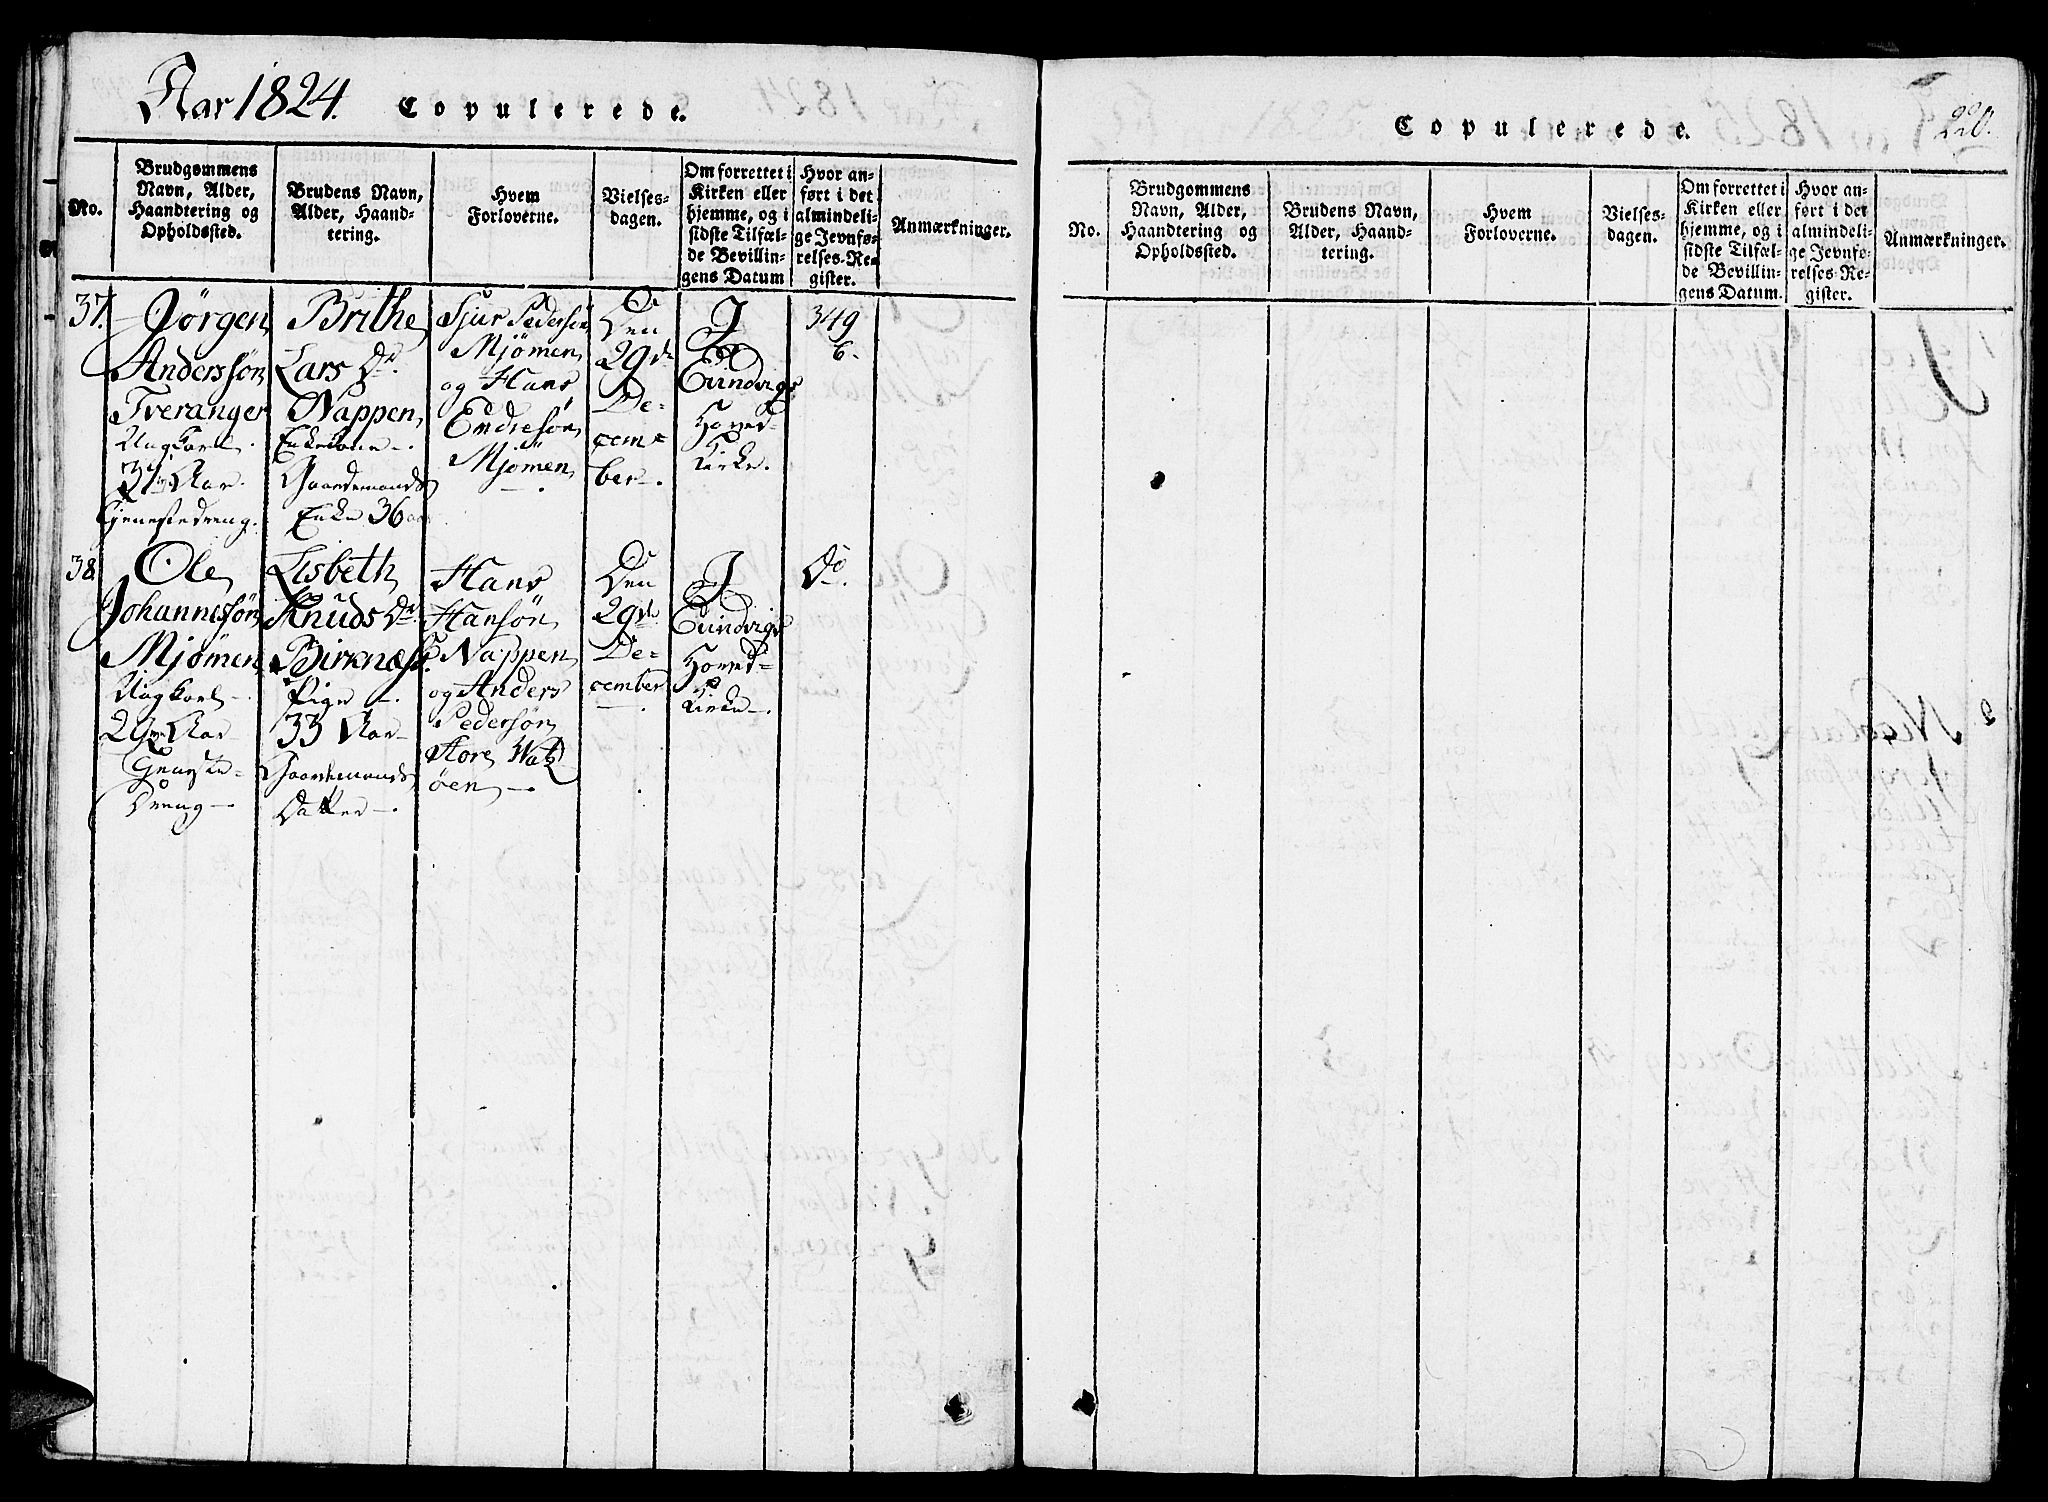 Aar 1824. Copulerede.
No.
Brudgommens
Navn, Alder,
Haandtering og
Opholdssted.
Brudens Navn,
Alder, Haand-
tering.
Hvem
Forloverne.
Vielses-
dagen.
Om forrettet i
Kirken eller
hjemme, og i
sidste Tilfæl-
de Bevillin-
gens Datum
Hvor an-
ført i det
almindeli-
ge Jevnfø-
relses-Re-
gister.
Anmærkninger.
37.
Jørgen
Anderssøn
Tveranger
Ungkarl.
37 Aar
Tjenestedreng.
Brithe
Lars Dr.
Nappen
Enkekone
Gaardmands
Enke 36 aar
Sjur Pedersøn
Mjömen
og Hans
Endresøn
Mjömen
Den
29de
De-
cem-
ber
I
Evindvigs
Hoved-
Kirke.
349
6.
38.
Ole
Johannessøn
Mjömen
Ungkarl
29 Aar
Tjeneste-
Dreng
Lisbeth
Knuds Dr.
Birknæs
Pige
33 Aar
Gaardmands
Datter
Hans
Hansøn
Nappen
og Anders
Pedersøn
Store
öen
Den
29de
De-
cember
I
Evindvigs
Hoved-
Kirke
Do.
Copulerede. 220.
No.
Brudgommens
Navn, Alder,
Haandtering og
Opholdssted.
Brudens Navn,
Alder, Haand-
tering.
Hvem
Forloverne.
Vielses-
dagen.
Om forrettet i
Kirken eller
hjemme, og i
sidste Tilfæl-
de Bevillin-
gens Datum.
Hvor an-
ført i det
almindeli-
ge Jevnfø-
relses-Re-
gister.
Anmærkninger.